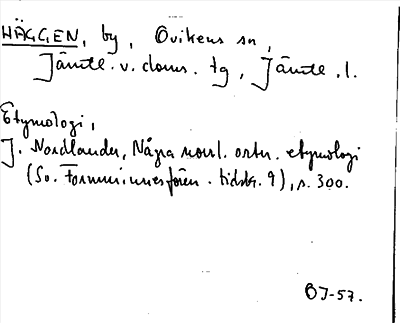 HÄGGEN, by, Ovikens sn,
Jämtl. v. doms. tg, Jämtl. l.
Etymologi,
J. Nordlander, Några norrl. ortn. etymologi
(Sv. Fornminnesfören. tidskr. 9), s. 300.
BJ-57.